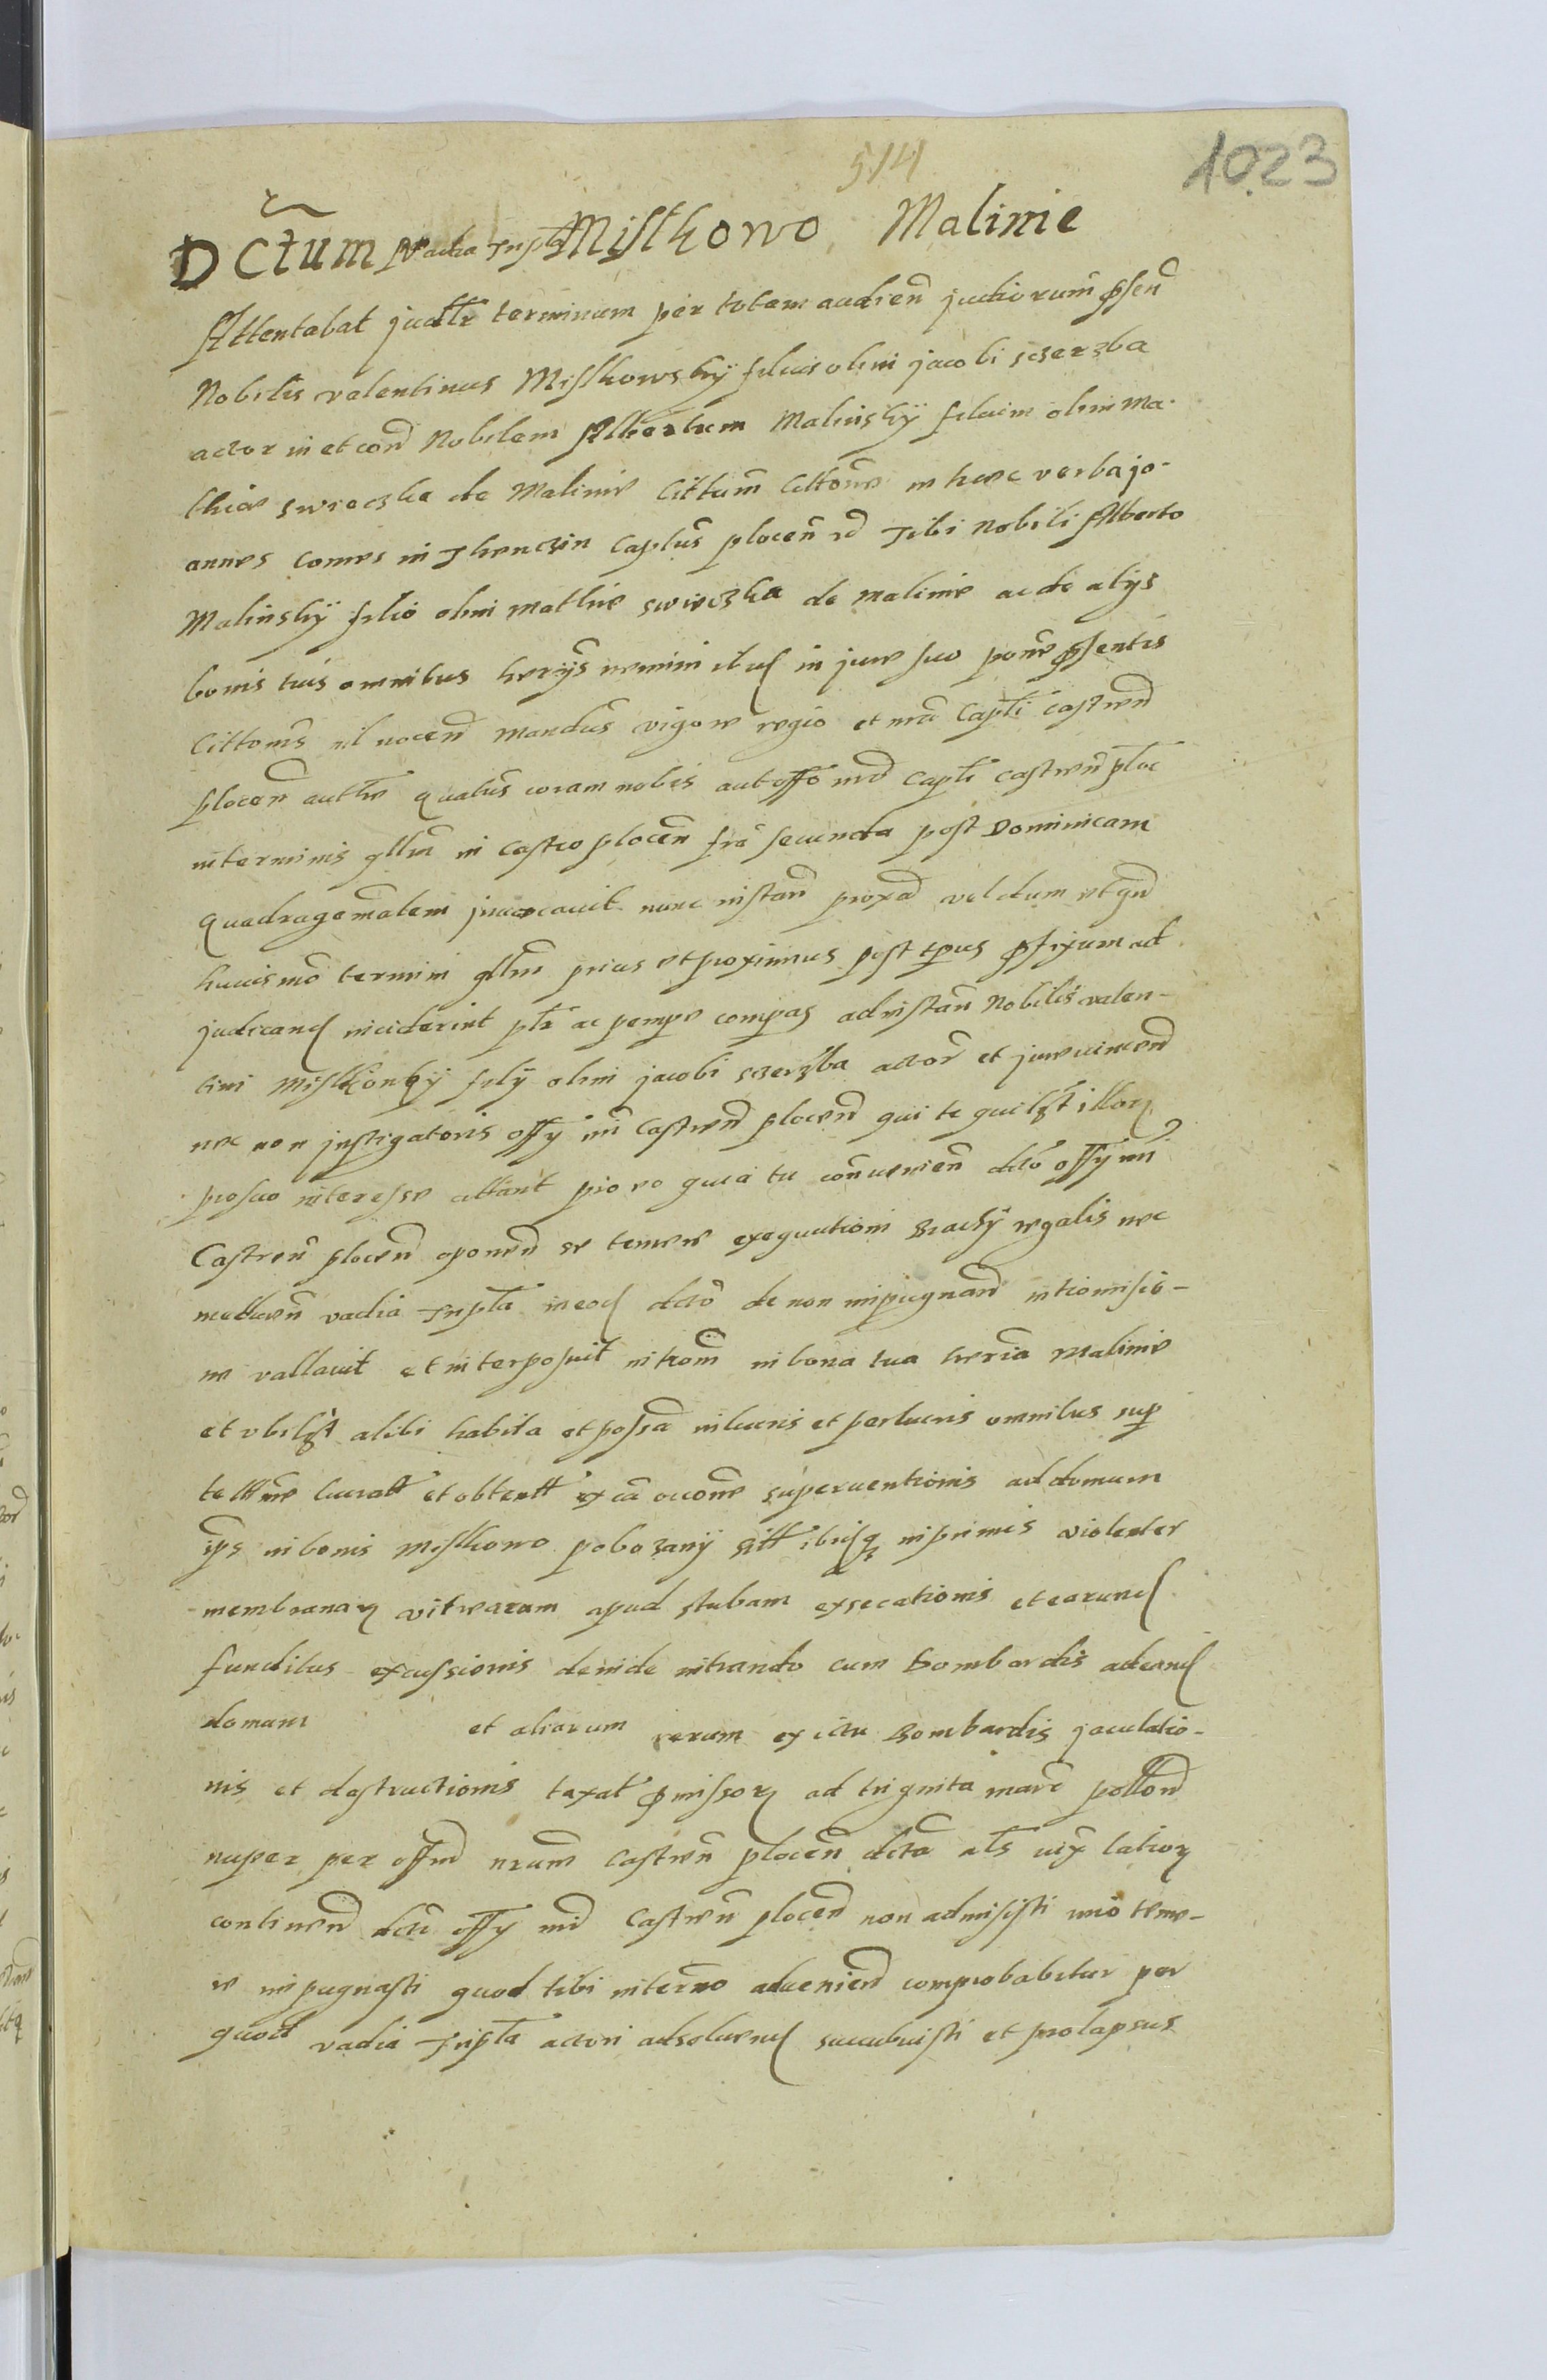 514
1023
Dctum vadia tripla Misthowo Malinie
Attentabat judlr terminum per totam audien judiorum psen
Nobilis valentinus Misthowsky filius olim jacobi sczerzba
actor in et con Nobilem Albertum Malinsky filium olim Ma-
thie swieczka de Malinie Cittum Cittone in haec verba jo-
annes Comes in Thenczin Captus plocen rd Tibi Nobili Alberto
Malinsky filio olim Mathie swieczka de Malinie ac de alijs
bonis tuis omnibus herijs nemini illud in jure suo pone psentis
Cittonis nil nocen mandus vigore regio et nra Capli castren
plocen authe quatus coram nobis aut offo nro Capli castren ploc
in terminis qllm in Castro plocen fra secunda post Dominicam
quadragemalem jnuocauit nunc instan proxa vel dum et qn
huiusmo termini qllm prius et proximus post tpus pfixum ad
judicand inciderint plr ac pempe compas ad instan Nobilis valen-
tini Misthonky filij olim jacobi sczerzba actor et jure uincen
nec non jnstigatoris offy nri Castren plocen qui te quilzt illor
pro suo interesse cittant pro eo quia tu conuenien dcto offy nri
Castren plocen oponen se temere exequutioni brachy regalis nec
metuen vadia tripla in eod dcto de non impugnand intromissio-
ne vallauit et interposuit introm in bona tua heria Malinie
et vbilzt alibi habita et possa in lucris et perlucris omnibus sup
te ttme lucratt et obtentt ex ca occone superuentionis ad domum
ips in bonis Misthowo pobozany sitt ibiq in primis violenter
membranar vitrearum apud stubam exsecationis et earund
funditus excussionis deinde intrando cum bombardis ad eand
domum et aliarum rerum ex ictu bombardis jaculatio-
nis et destructionis taxat pmissor ad triginta marc pollon
nuper per offm nrum Castren plocen dcta als uix latior
continen dcti offy nri Castren plocen non admisisti imo teme-
re impugnasti quod tibi in termo adueniend comprobabitur per
quod vadia tripla actori adsoluend succubuisti et prolapsus